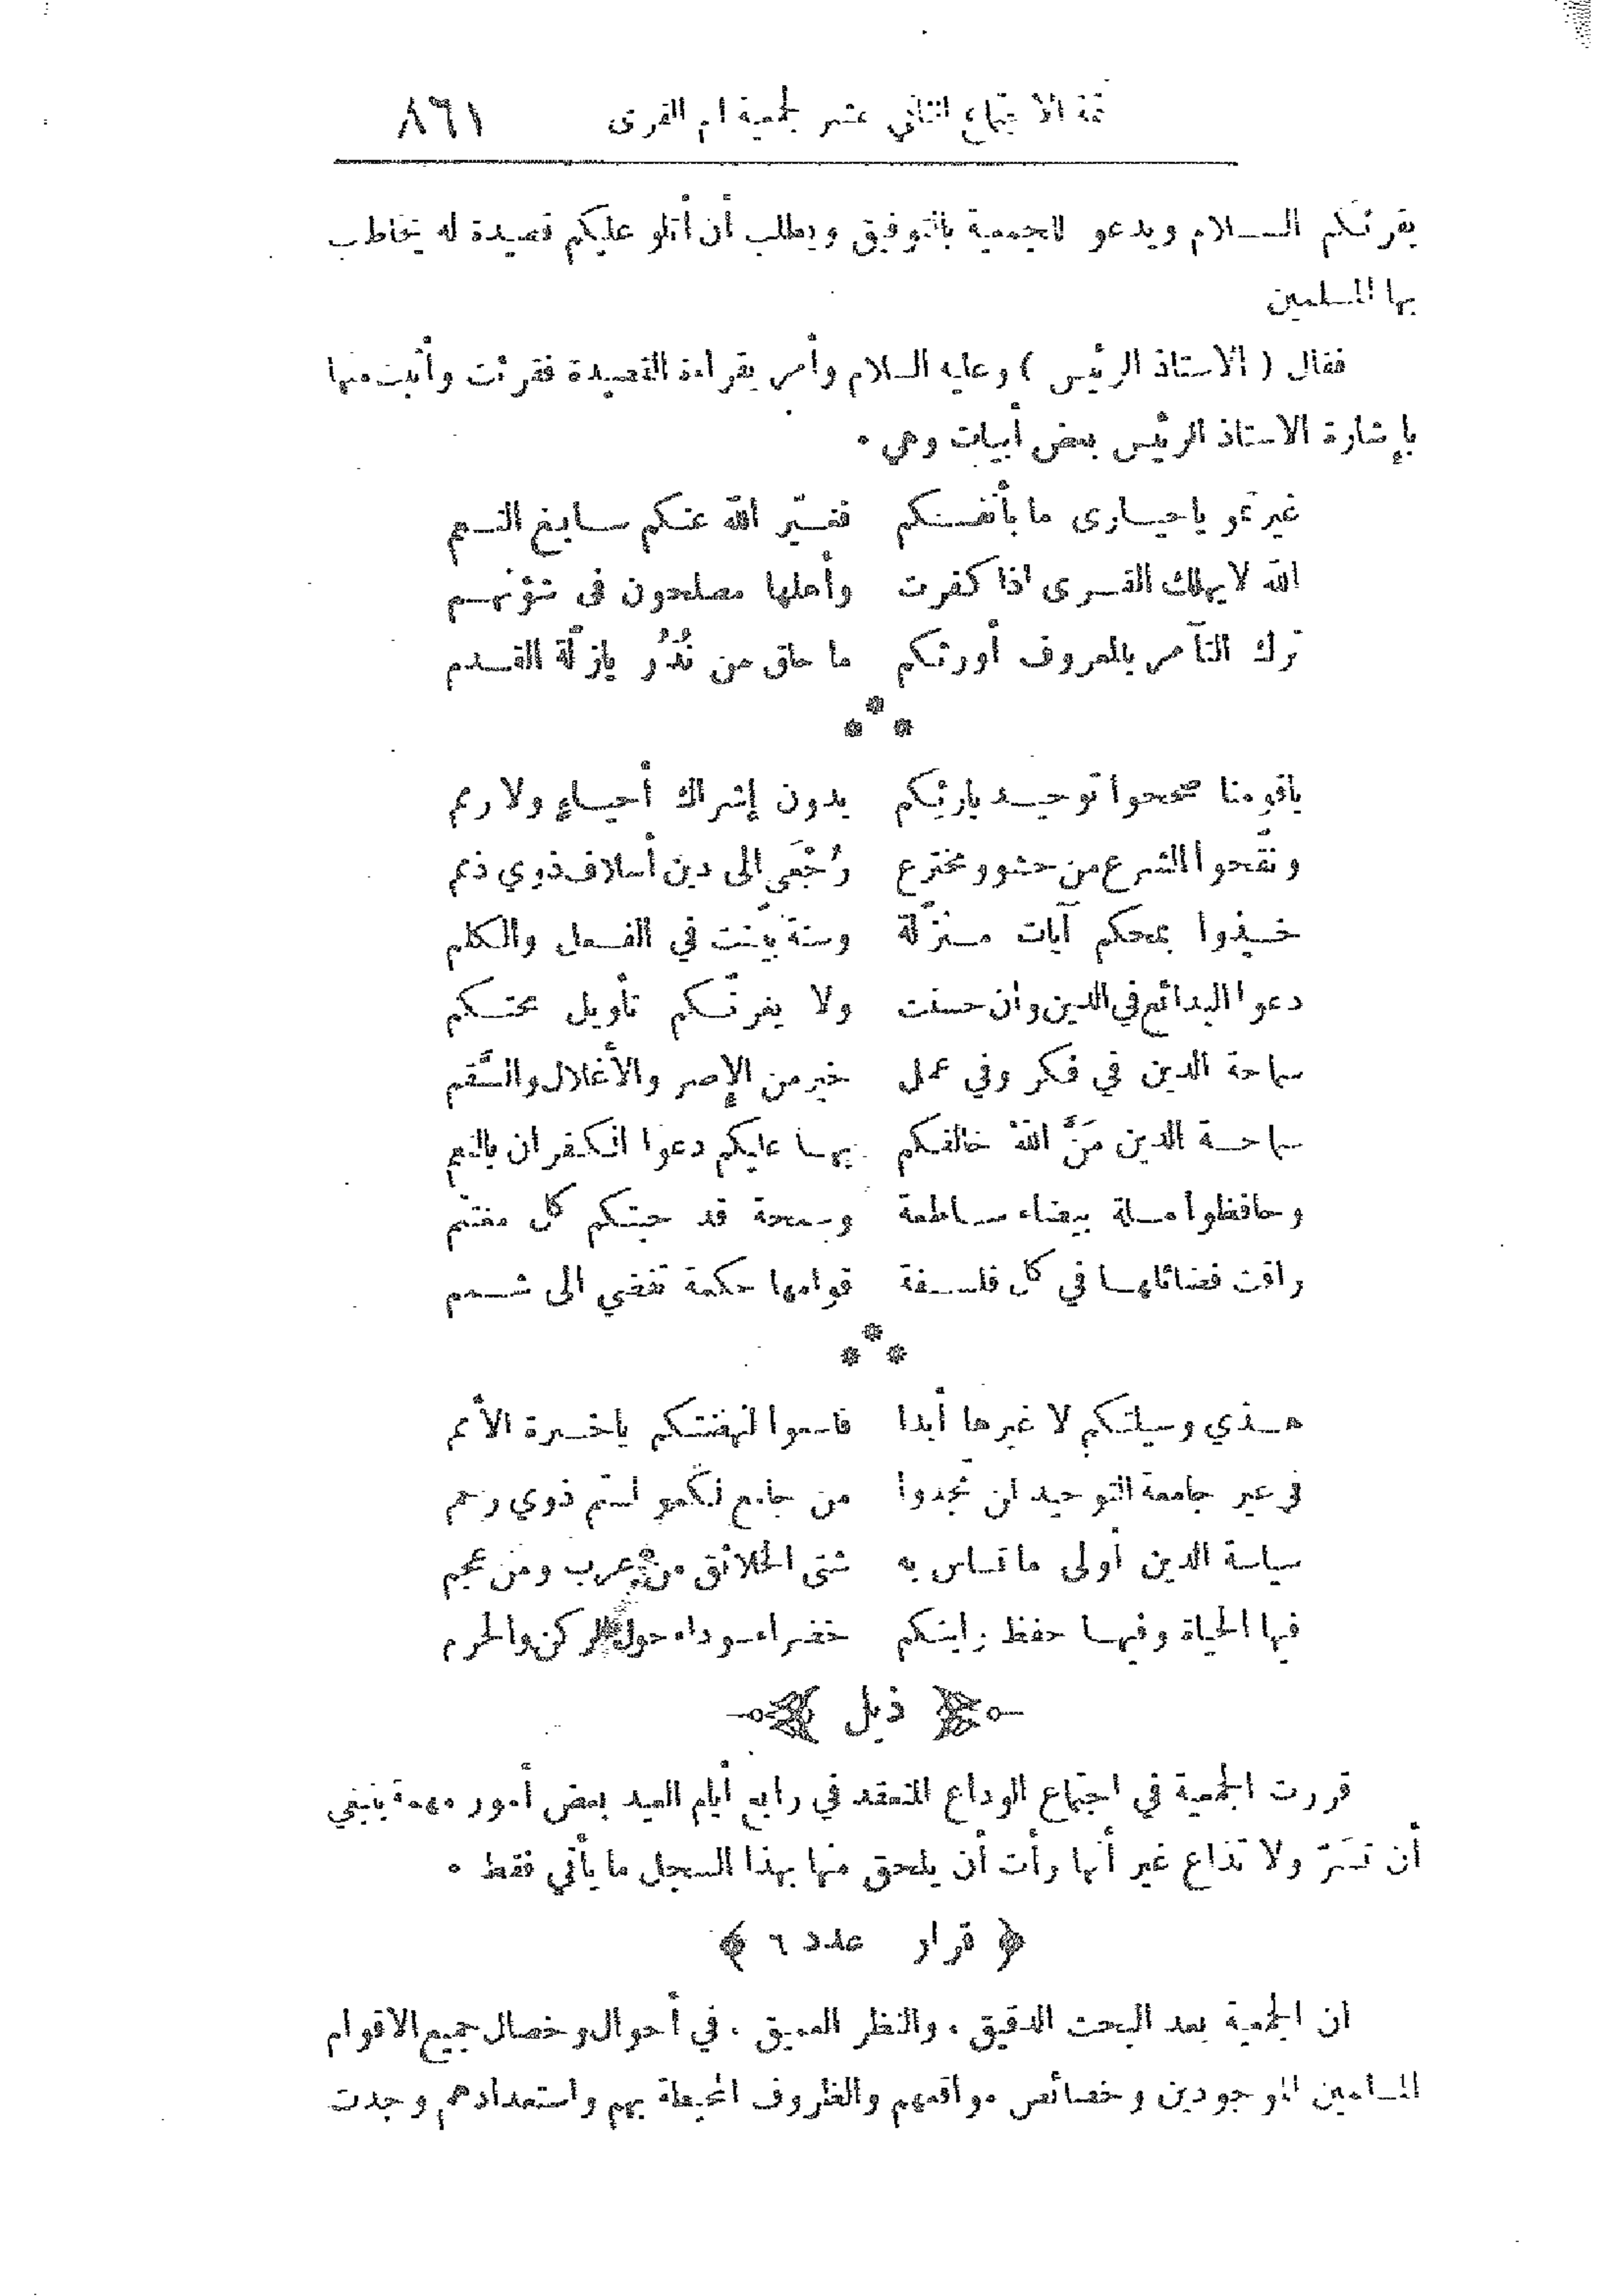 تتمة الاجتماع الثاني عشر لجمعية ام القرى ٨٦١
يقرئكم السلام ويدعو للجمعية بالتوفيق ويطلب أن أتلو عليكم قصيدة له يخاطب
بها المسلمين
فقال ( الاستاذ الرئيس ) وعليه السلام وأمر بقراءة القصيدة فقرئت وأثبت منها
بإشارة الاستاذ الرئيس بعض أبيات وهي .
غيرتمو ياحيارى ما بأنفسكم فغيّر الله عنكم سابغ النعم
الله لايهلك القرى اذا كفرت وأهلها مصلحون في شؤنهم
ترك التآمر بالمعروف أورثكم ما حاق من نُذُر يازلّة القدم
* * *
ياقومنا صححوا توحيد بارئكم بدون إشراك أحياءٍ ولا رمم
ونقّحوا الشرع من حشو ومخترع رُجْعَى الى دين أسلاف ذوي ذمم
خذوا بمحكم آيات منزّلة وسنة بيّنت في الفعل والكلم
دعوا البدائع في الدين وان حسنت ولا يغرنّكم تأويل محتكم
سماحة الدين في فكر وفي عمل خير من الإصر والأغلال والسَّقم
سماحة الدين مَنَّ اللهُ خالقكم بها عليكم دعوا الكفران بالنعم
وحافظوا ملة بيضاء ساطعة وسمحة قد حبتكم كل مغتنم
راقت فضائلها في كل فلسفة قوامها حكمة تفضي الى شمم
* * *
هذي وسيلتكم لا غيرها أبدا فاسعوا لنهضتكم ياخيرة الأمم
في غير جامعة التوحيد لن تجدوا من جامع لكمو لستم ذوي رحم
سياسة الدين أولى ما تساس به شتى الخلائق من عرب ومن عجم
فيها الحياة وفيها حفظ رايتكم خضراء سوداء حول الركن والحرم
ذيل
قررت الجمعية في اجتماع الوداع المنعقد في رابع أيام العيد بعض أمور مهمة ينبغي
أن تسَرّ ولا تذاع غير أنها رأت أن يلحق منها بهذا السجل ما يأتي فقط .
﴿ قرار عدد ٦ ﴾
ان الجمعية بعد البحث الدقيق . والنظر العميق . في أحوال وخصال جميع الاقوام
المسلمين الموجودين وخصائص مواقعهم والظروف المحيطة بهم واستعدادهم وجدت